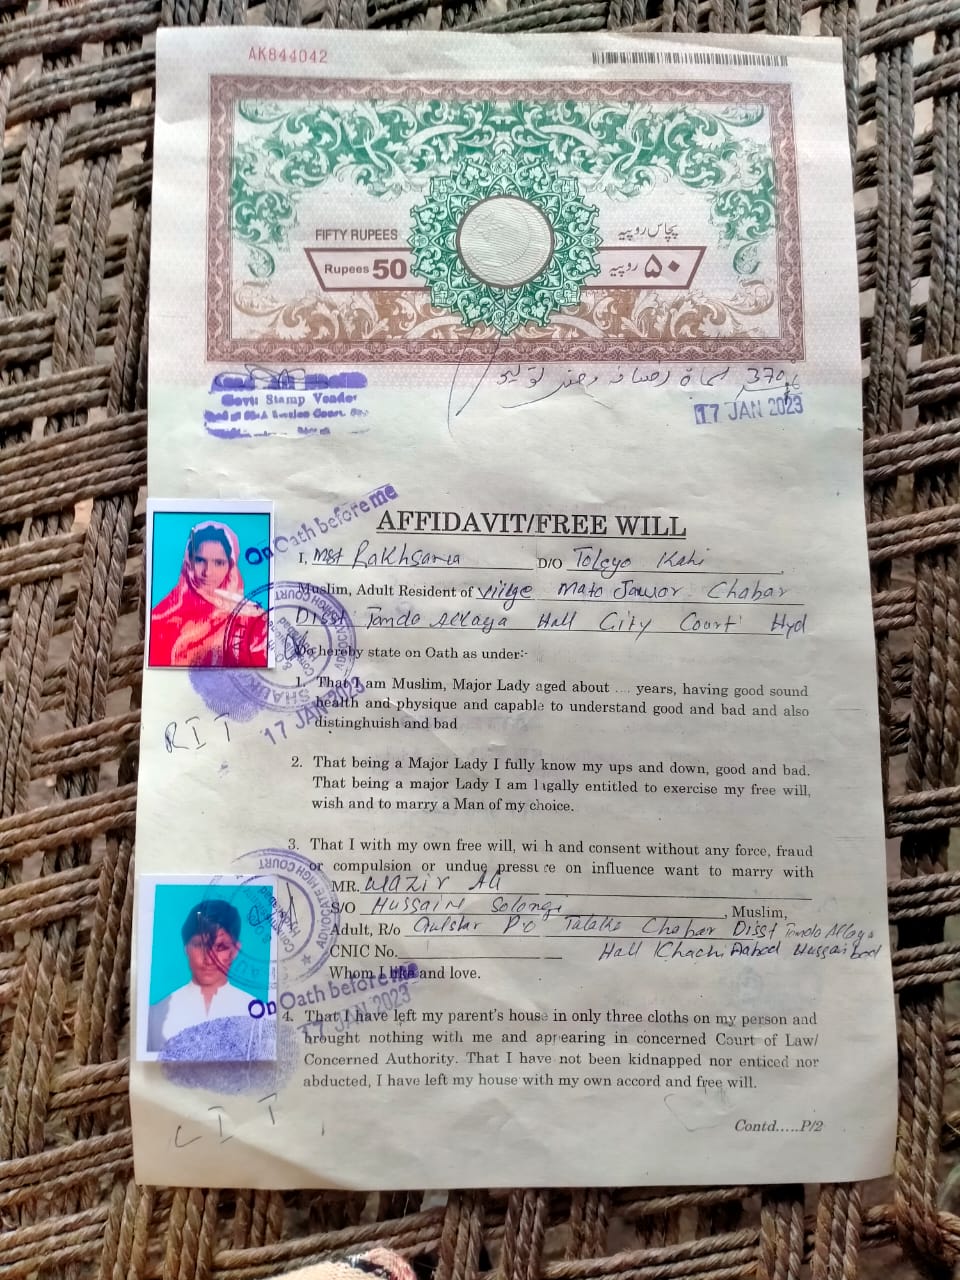 AK844042
FIFTY RUPEES
پچاس روپیہ
Rupees 50
۵۰ روپیہ
370
17 JAN 2023
Govt: Stamp Vendor
On Oath before me
AFFIDAVIT/FREE WILL
I, Mst Rakhsana D/O Toleyo Kahi
Muslim, Adult Resident of village Mato Jawor Chabar
Disst Tando Allaya Hall City Court Hyd
Do hereby state on Oath as under:-
1. That I am Muslim, Major Lady aged about .... years, having good sound
health and physique and capable to understand good and bad and also
distinghuish and bad
17 JAN 2023
RIT
2. That being a Major Lady I fully know my ups and down, good and bad.
That being a major Lady I am l gally entitled to exercise my free will,
wish and to marry a Man of my choice.
3. That I with my own free will, wi h and consent without any force, fraud
or compulsion or undue pressu e on influence want to marry with
MR. Wazir Ali
S/O Hussain Solongi, Muslim,
Adult, R/o Gulstar P/o Talalka Chabar Disst Tando Allaya
CNIC No. Hall Khachi Aabad Hussaibad
Whom I like and love.
ADVOCATE HIGH COURT
On Oath before me
17 JAN 2023
4. That I have left my parent's house in only three cloths on my person and
brought nothing with me and appearing in concerned Court of Law/
Concerned Authority. That I have not been kidnapped nor enticed nor
abducted, I have left my house with my own accord and free will.
LIT
Contd.....P/2